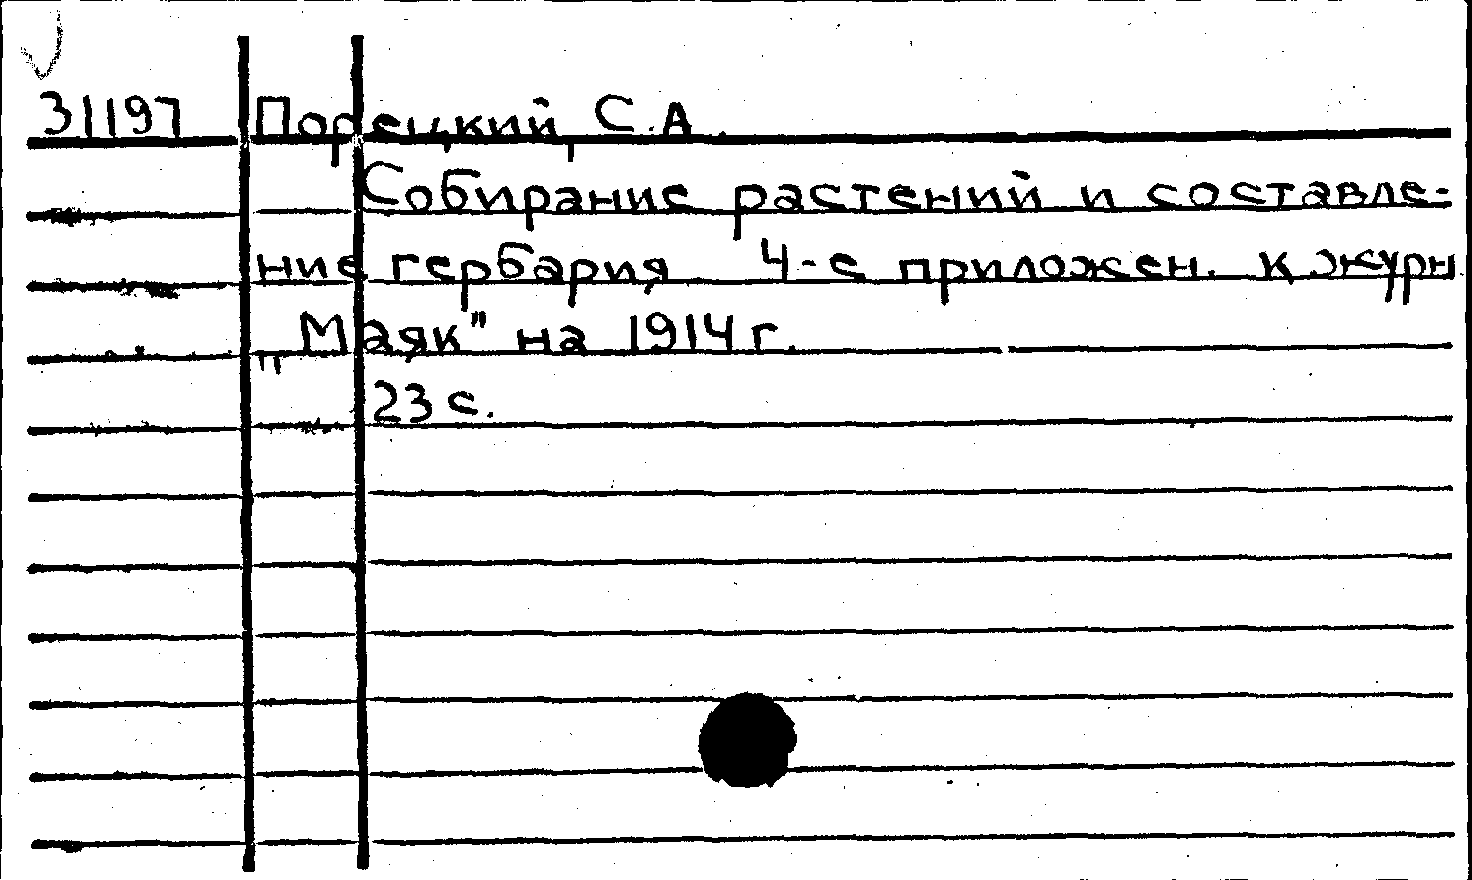 31197 Порецкий, С.А.
Собирание растений и составле-
ние гербария 4-е приложен. к журн
„Маяк" на 1914 г.
23 с.